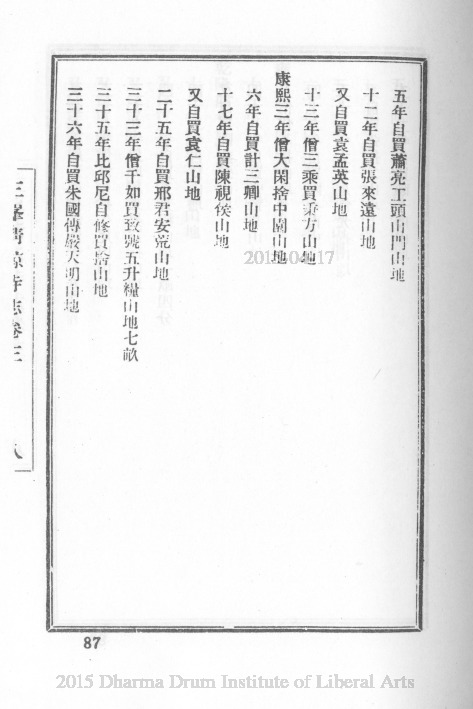 五年自買蕭亮工頭山門山地
十二年自買張來遠山地
又自買袁孟英山地
十三年僧三乘買秉方山地
康熙三年僧大閑捨中園山地
六年自買計三卿山地
十七年自買陳視侯山地
又自買袁仁山地
二十五年自買邢君安荒山地
三十三年僧千如買致號五升糧山地七畝
三十五年比邱尼自修買捨山地
三十六年自買朱國傳嚴天明山地
三峯清涼寺志卷三
八
87
2015 Dharma Drum Institute of Liberal Arts